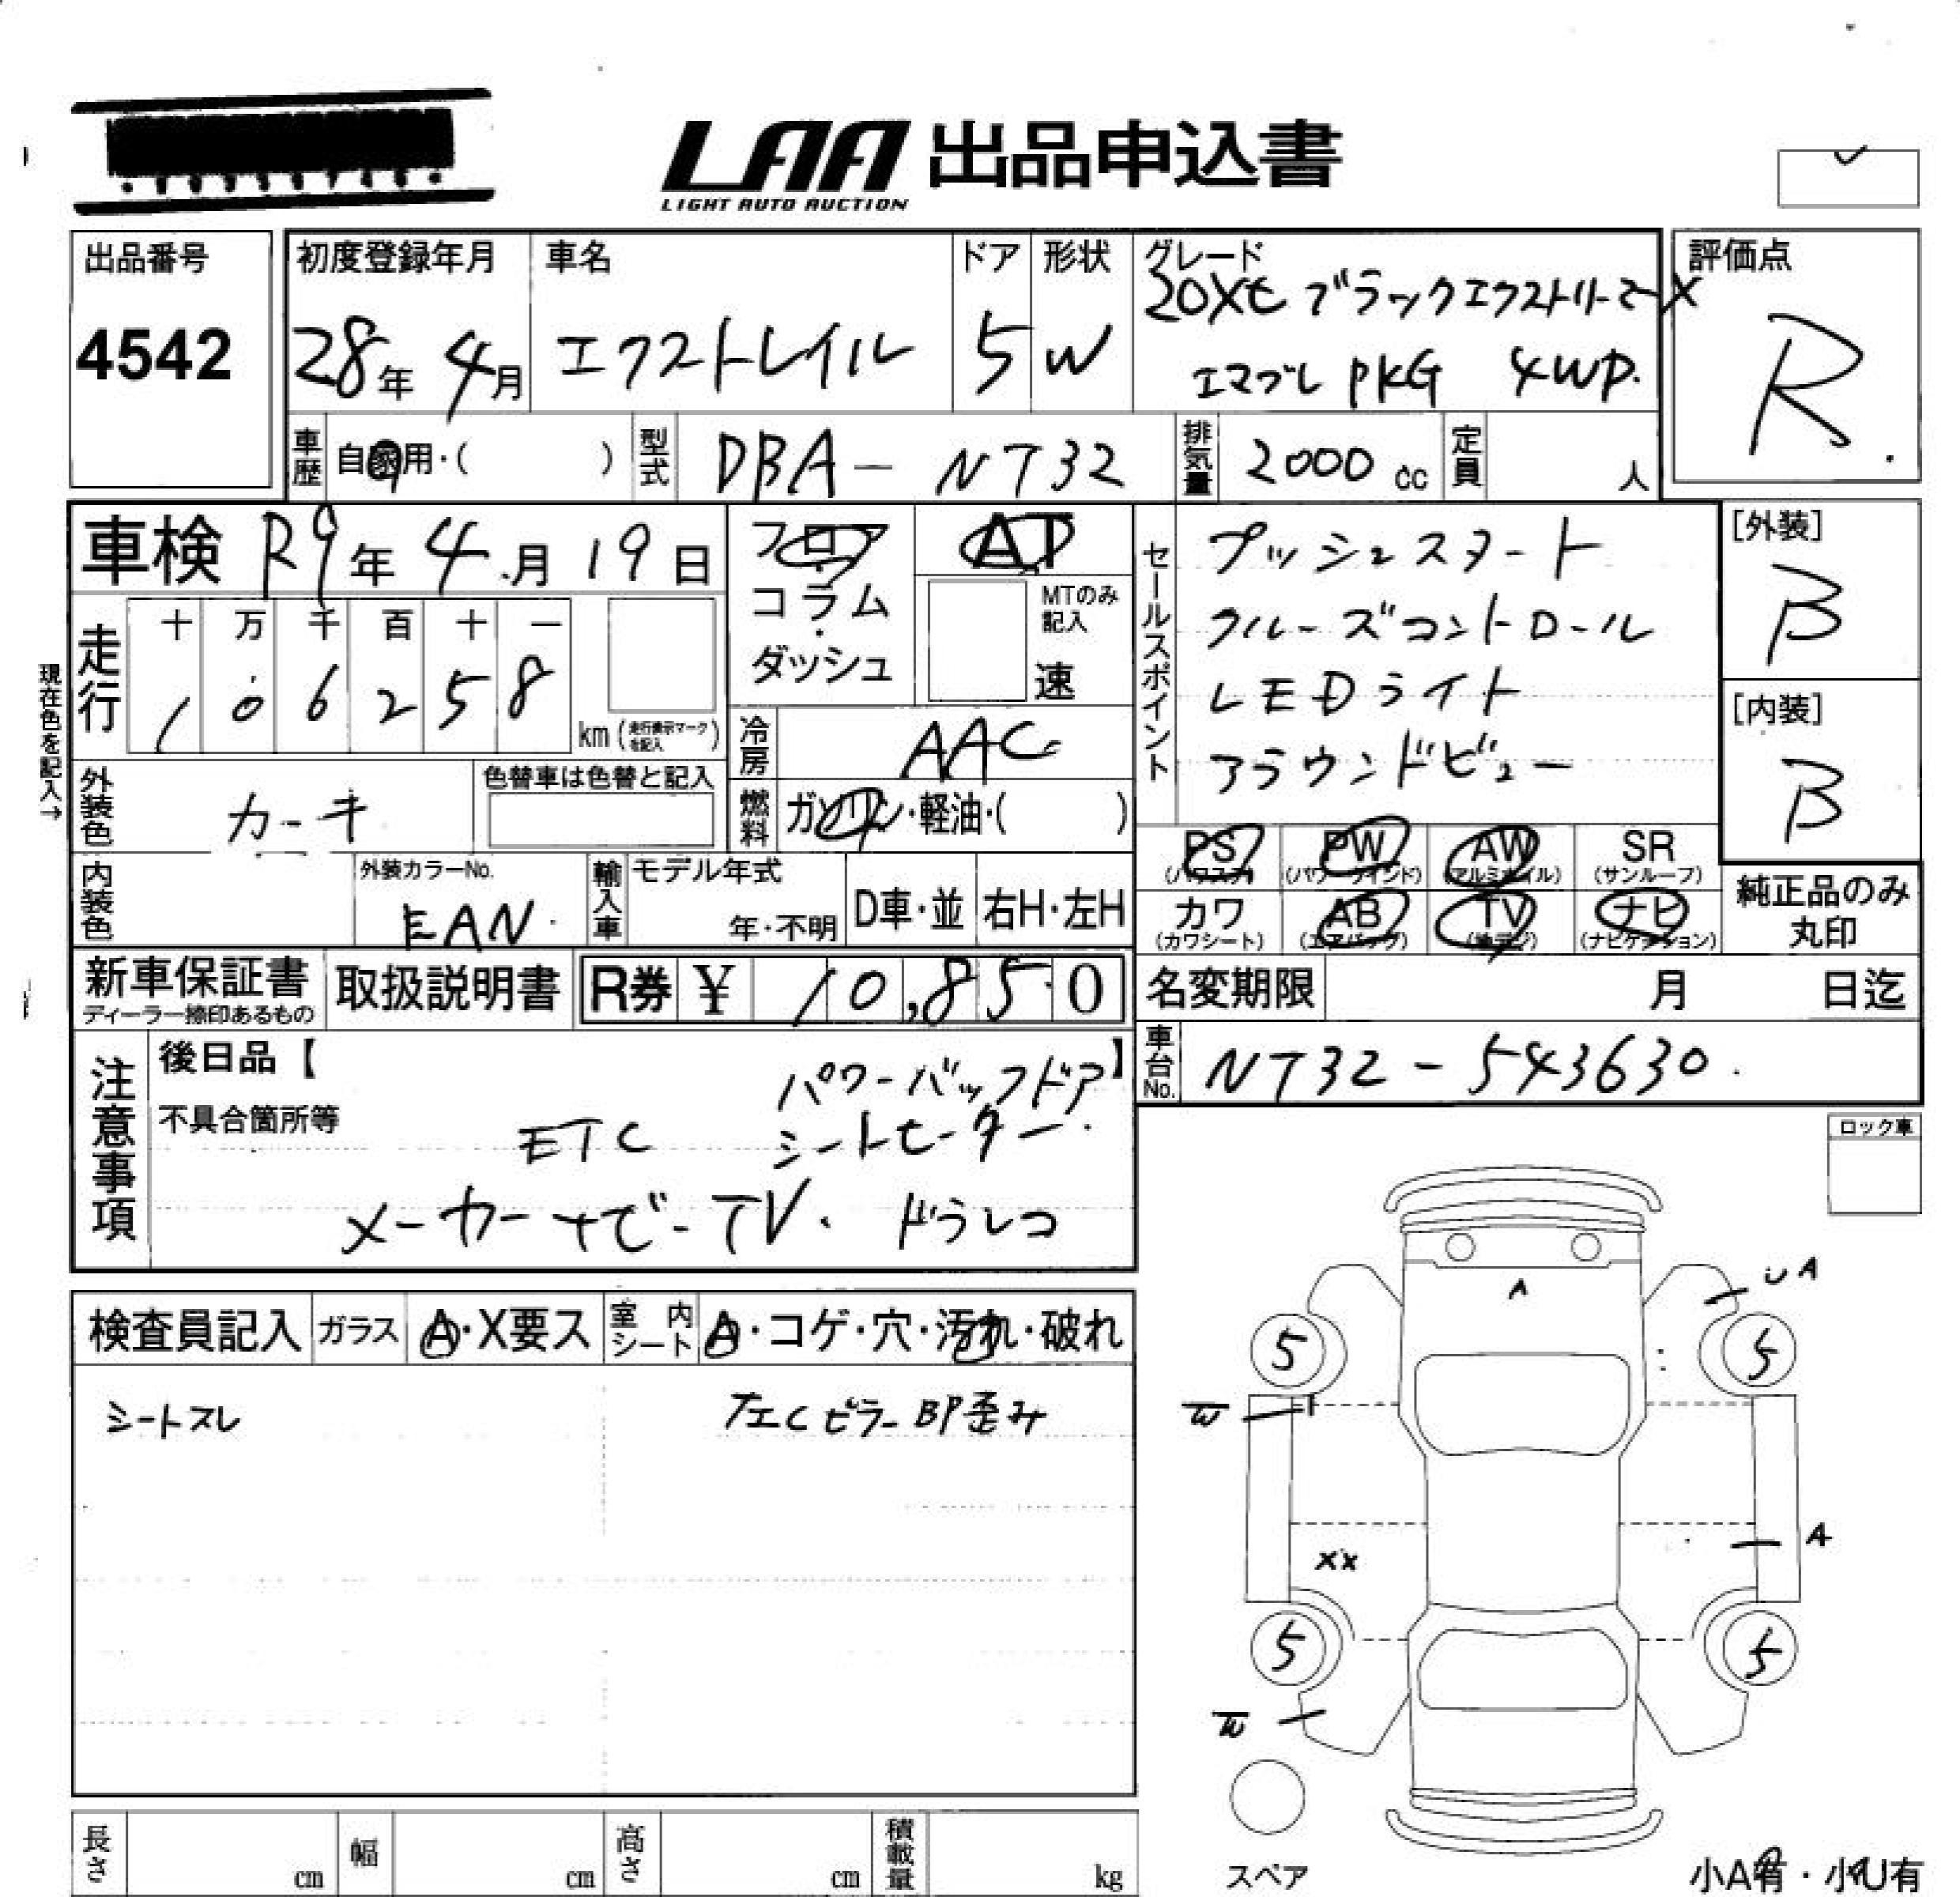 LAA 出品申込書
LIGHT AUTO AUCTION
出品番号
4542
初度登録年月
28年 4月
車名
エクストレイル
ドア
5
形状
W
グレード
20Xt ブラックエクストリーマーX
エマブレ PKG 4WD.
評価点
R
車歴
自家用・( )
型式
DBA-NT32
排気量
2000 cc
定員
人
車検 R9年 4月 19日
フロア・コラム・ダッシュ
AT
MTのみ記入
速
現在色を記入→
走行
十 万 千 百 十 一
1 0 6 2 5 8
km (走行表示マークを記入)
冷房
AAC
燃料
ガソリン・軽油・( )
外装色
カーキ
色替車は色替と記入
内装色
外装カラーNo.
EAN
輸入車
モデル年式
年・不明
D車・並
右H・左H
セールスポイント
プッシュスタート
クルーズコントロール
LEDライト
アラウンドビュー
[外装]
B
[内装]
B
PS (パワステ)
PW (パワーウインド)
AW (アルミホイル)
SR (サンルーフ)
カワ (カワシート)
AB (エアバッグ)
TV (地デジ)
ナビ (ナビゲーション)
純正品のみ丸印
新車保証書
ディーラー捺印あるもの
取扱説明書
R券 ¥ 10,850
名変期限 月 日迄
車台No.
NT32-543630
注意事項
後日品【 】
不具合箇所等
パワーバックドア
ETC シートヒーター
メーカーナビ-TV. ドラレコ
ロック車
検査員記入
ガラス
A・X要ス
室内シート
A・コゲ・穴・汚れ・破れ
シートスレ
左Cピラー BP歪み
A
UA
5
5
W
XX
A
5
5
W
スペア
長さ cm
幅 cm
高さ cm
積載量 kg
小A有・小U有